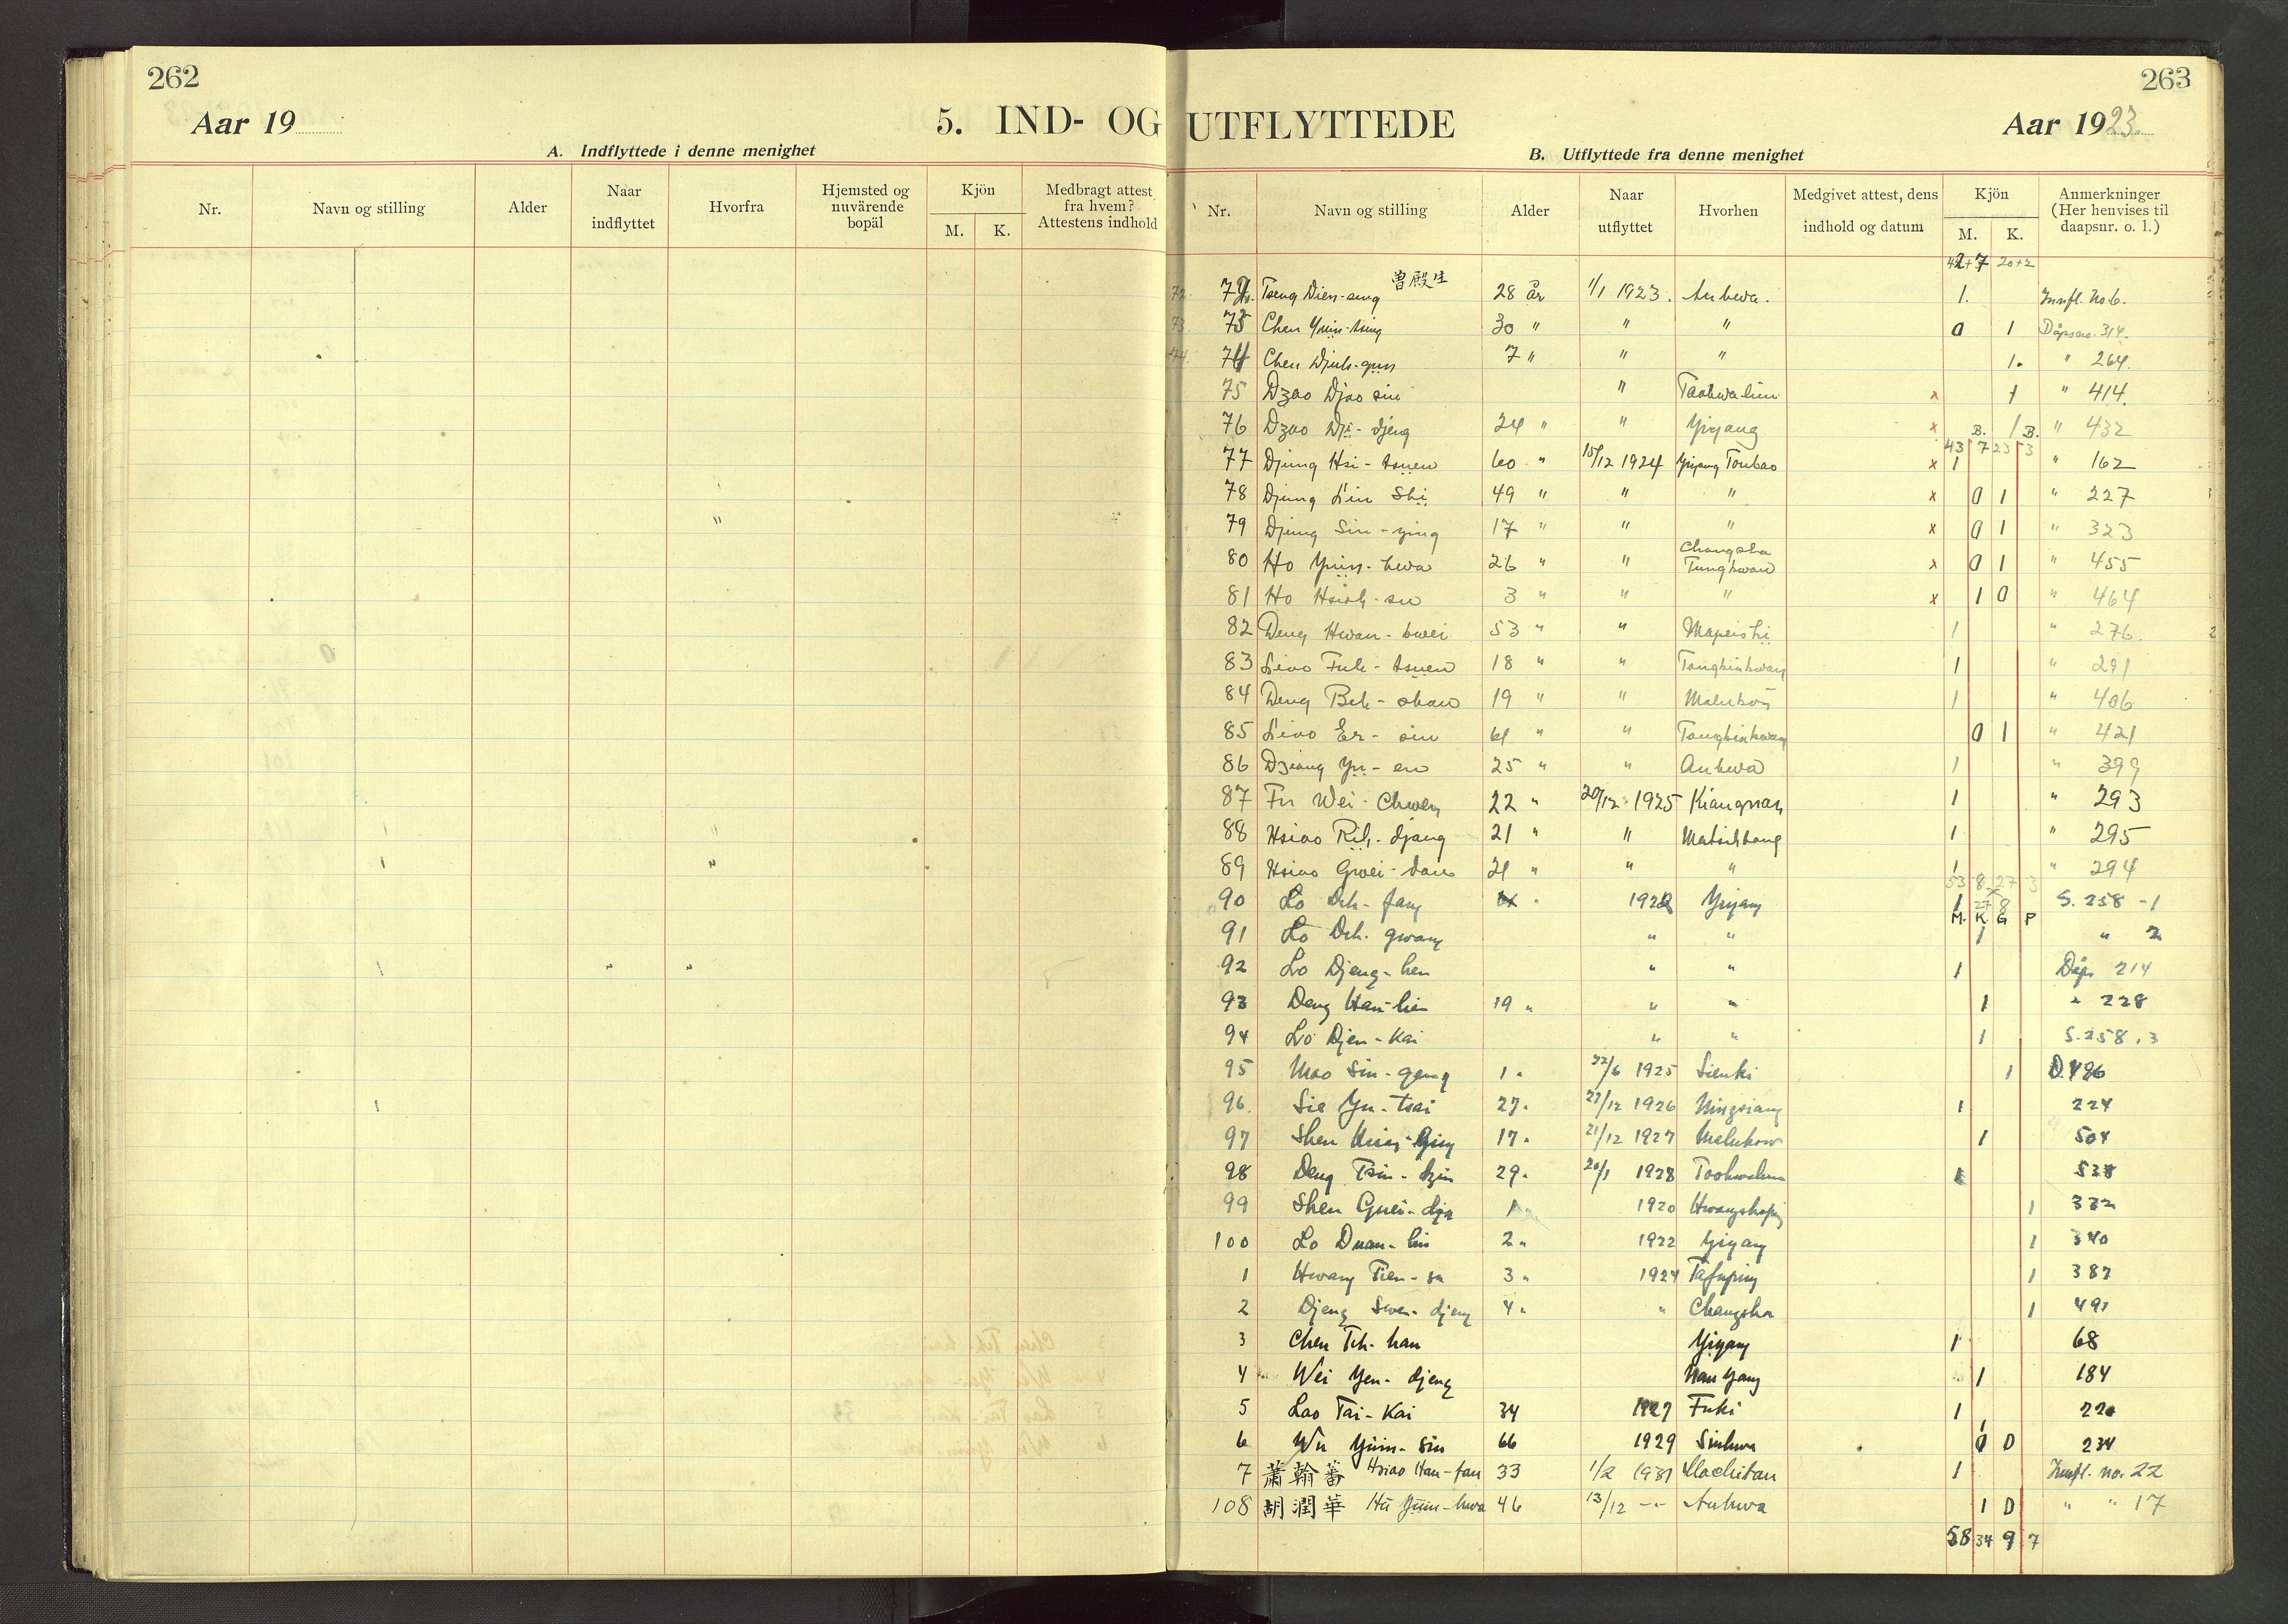 262
Aar 19
5. IND- OG
A. Indflyttede i denne menighet
Nr. Navn og stilling Alder Naar indflyttet Hvorfra Hjemsted og nuværende bopäl Kjön M. K. Medbragt attest fra hvem? Attestens indhold
263
UTFLYTTEDE
Aar 1923.
B. Utflyttede fra denne menighet
Nr. Navn og stilling Alder Naar utflyttet Hvorhen Medgivet attest, dens indhold og datum Kjön M. K. Anmerkninger (Her henvises til daapsnr. o. l.)
42+7 20+2
曾殿生
72 Tseng Dien-seng 28 år 1/1 1923. Anhwa. 1. Innfl. No 6.
73 Chen Yuin-tsing 30 " " " 0 1 Dåpsno. 314.
74 Chen Djuh-guin 7 " " " 1. " 264.
75 Dzao Djao sin " Taohwalun x 1 " 414.
76 Dzao Dji-djeng 24 " " Yiyang x 1 " 432
B. B.
43 7 23 3
77 Djung Hsi-tsuen 60 " 15/12 1924 Yiyang Toubao x 1 " 162
78 Djung Lin Shi 49 " " " x 0 1 " 227
79 Djung Sin-ying 17 " " " x 0 1 " 323
80 Ho Yuin-hwa 26 " " Changsha Tungkwan x 0 1 " 455
81 Ho Hsioh-su 3 " " " x 1 0 " 464
82 Deng Hwan-kwei 53 " " Mapeishi 1 " 276.
83 Liao Fuh-tsuen 18 " " Tangkiakwan 1 " 291
84 Deng Beh-shan 19 " " Malukou 1 " 406
85 Liao Er-sin 61 " " Tangkiakwan 0 1 " 421
86 Dziang Yu-en 25 " " Anhwa 1 " 399
87 Fu Wei-Chwen 22 " 20/12 1925 Kiangnan 1 " 293
88 Hsiao Rih-djang 21 " " Matsihtang 1 " 295
89 Hsiao Gwei-dan 21 " " " 1 " 294
53 8 27 3
90 Lo Deh-fang 1922 Yiyang 1 S. 258 -1
27 8
M. K. G P
91 Lo Deh-gwang " " 1 " 2
92 Lo Djeng-hen " " 1 Dåps 214
93 Deng Han-lin 19 " " " 1 " 228
94 Lo Djen-Kai " " 1 S. 258, 3
95 Mao Sin-geng 1 " 22/6 1925 Sienki 1 D. 486
96. Sie Yu-tsai 27 " 22/12 1926 Ningsiang 1 224
97 Shen 17 " 21/12 1927 Malukow 1 504
98 Deng Tsin-dzin 29 " 20/1 1928 Taohwalun 1 528
99 Shen Guei-dja 1 " 1920 1 332
100 Lo Duan-lin 2 " 1922 Yiyang 1 340
1 Hwang Tien-su 3 " 1924 Tafuping 1 387
2 Djeng Swen-djeng 4 " " Changsha 1 491
3 Chen Teh-han Yiyang 1 68
4 Wei Yen-djeng Nan Yang 1 184
5 Lao Tai-Kai 34 1927 Fuki 1 220
6 Wu Yuin-Sin 66 1929 Sinhwa 1 0 0 234
7 蕭翰蕃 Hsiao Han-fan 33 1/2 1931 Machitan 1 Innfl. no. 22
108 胡潤華 Hu Yuin-hwa 46 13/12 -"- Anhwa 1 0 " " 17
58 34 9 7